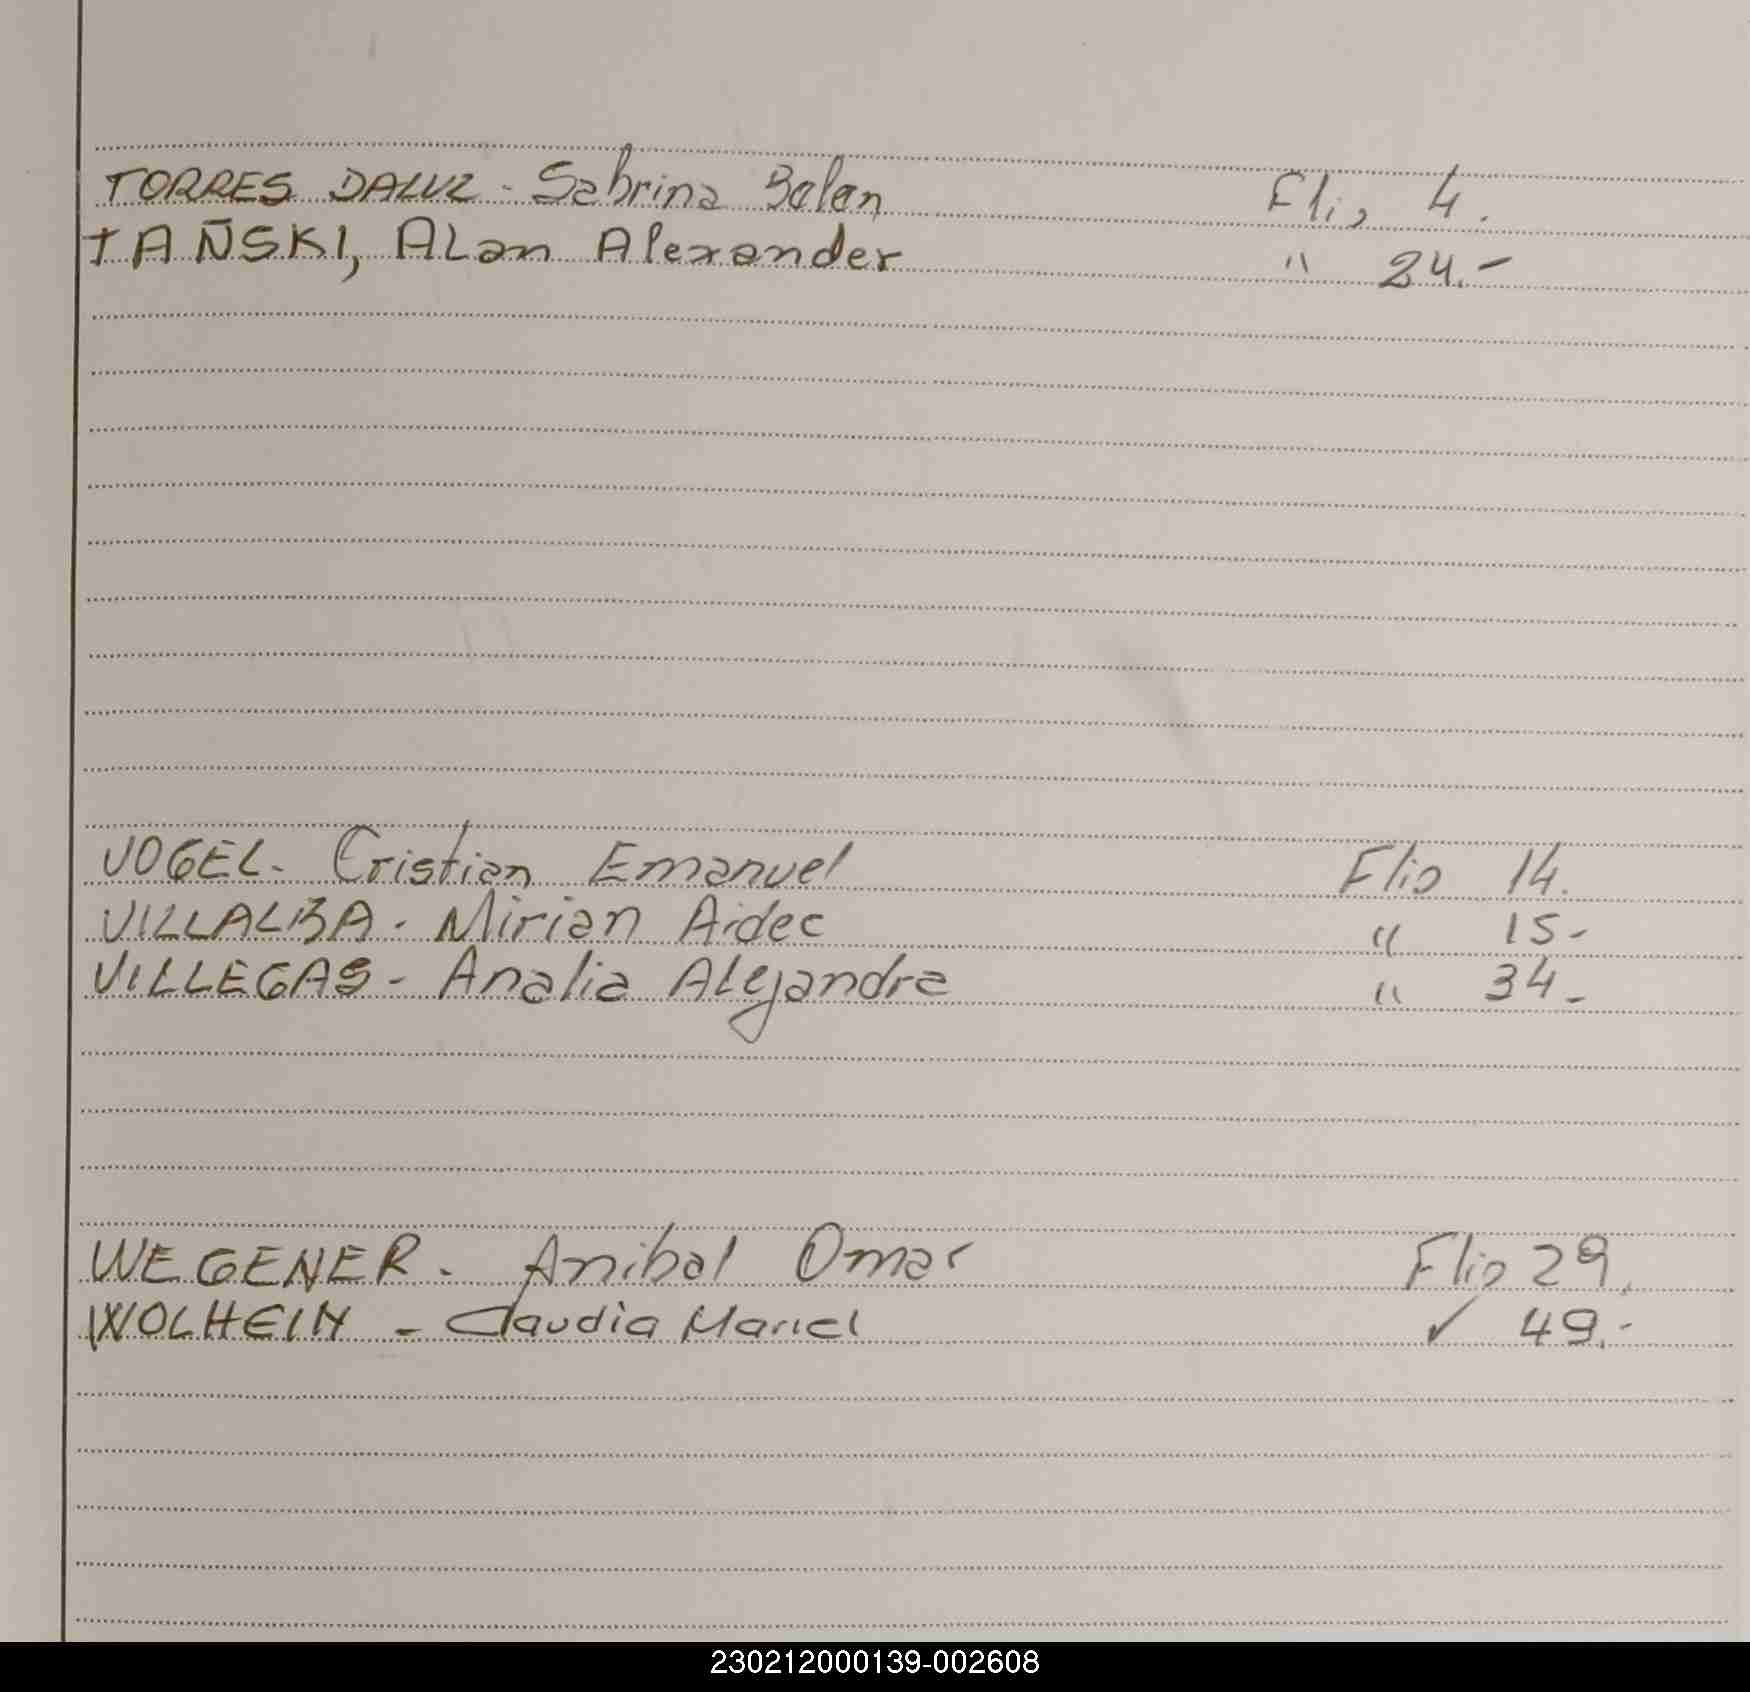 TORRES DALUZ - Sabrina Belen Flio 4.
TAÑSKI, ALan Alexander " 24.-
VOGEL - Cristian Emanuel Flio 14.
VILLALBA - Mirian Aidee " 15-
VILLEGAS - Analia Alejandra " 34-
WEGENER - Anibal Omar Flio 29.
WOLHEIN - Claudia Mariel ✓ 49.-
230212000139-002608